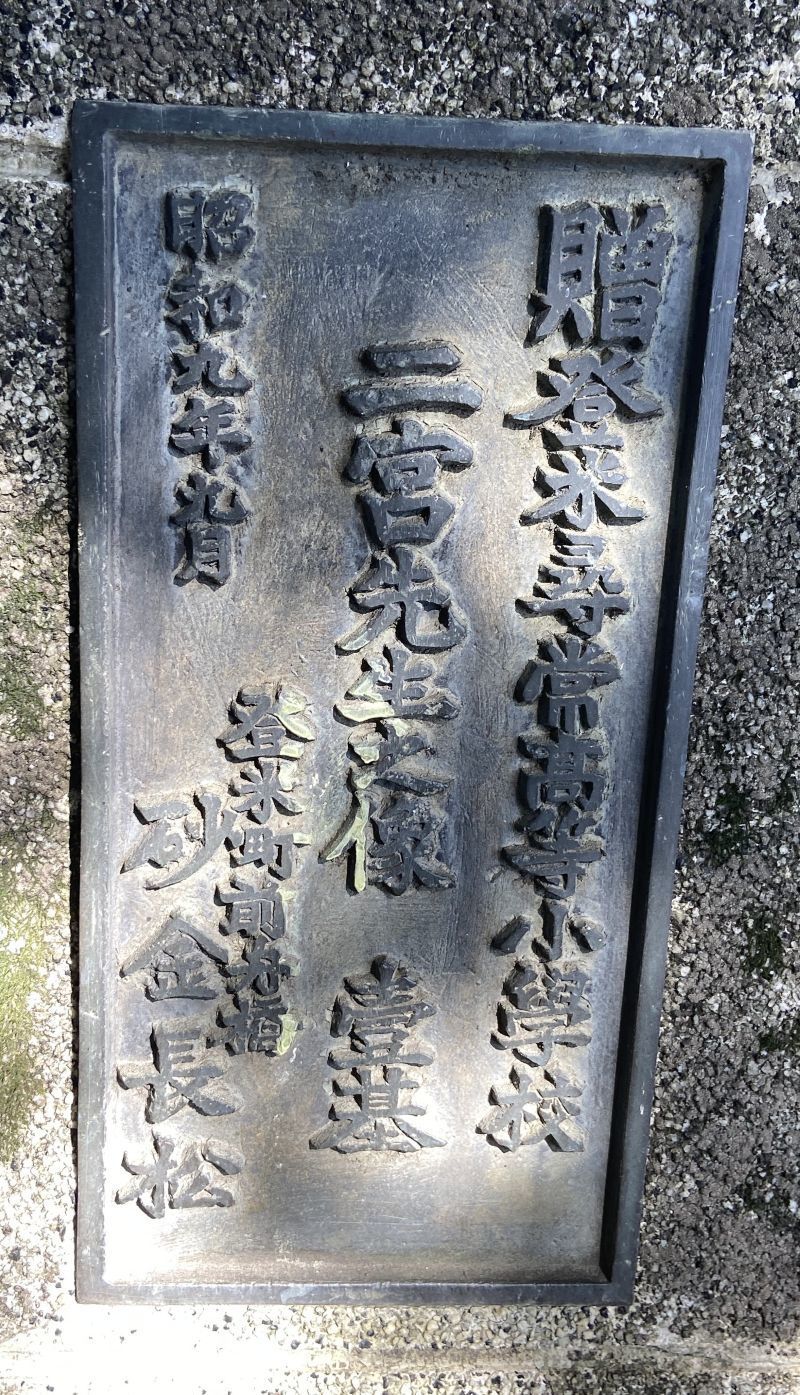 贈登米尋常高等小學校
二宮先生之像 壹基
昭和九年九月
登米町前舟橋
砂金長松